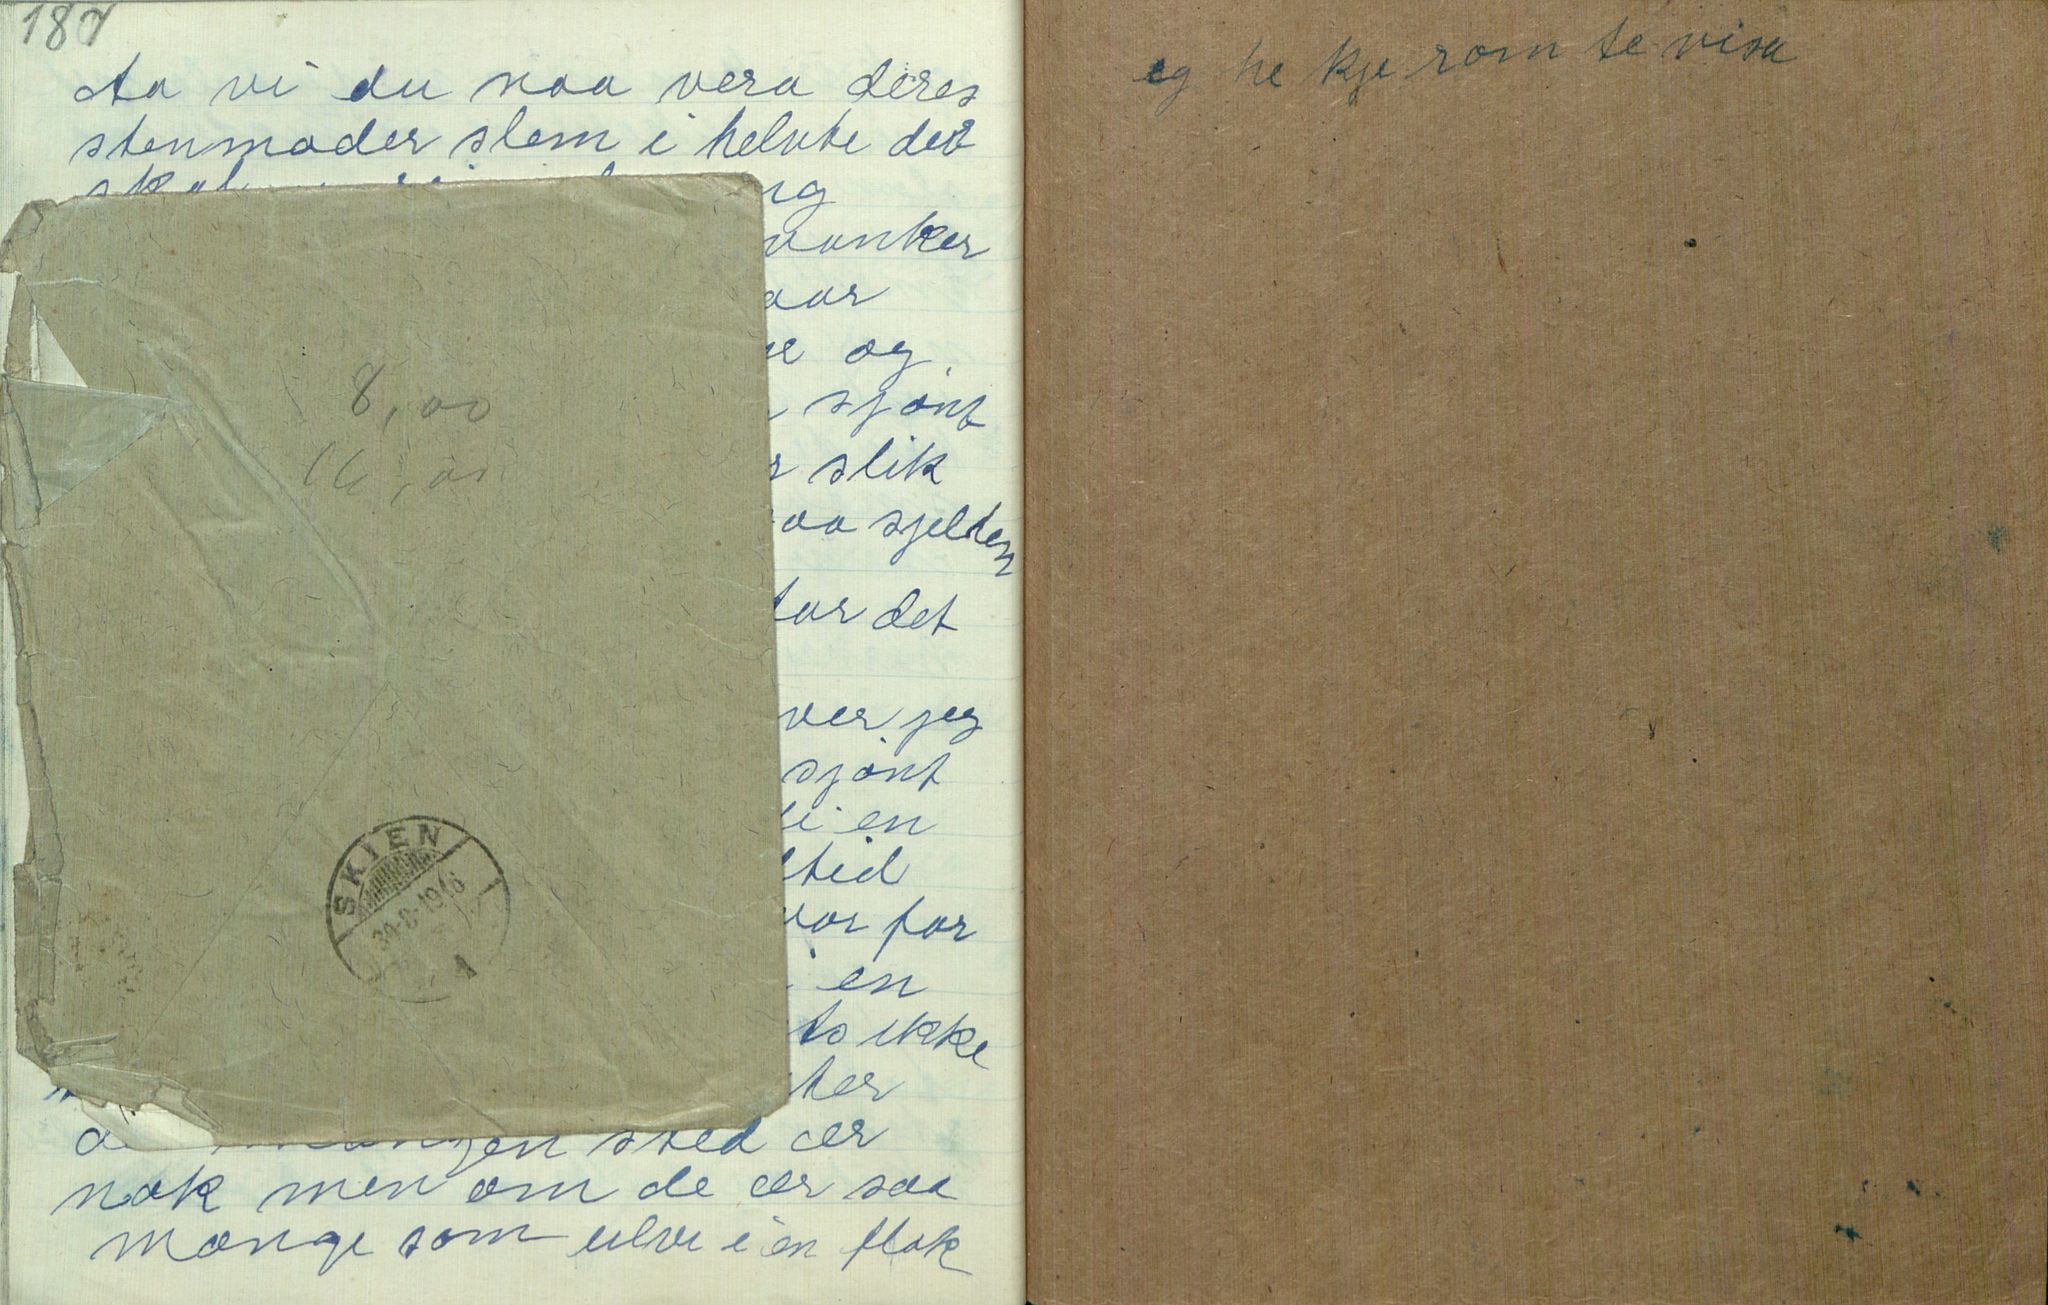 187
da vi du naa vera deres
stenmoder slem i helvte det
vanker
aar
og
sjønt
slik
saa sjelden
tar det
ver jeg
sjønt
i en
ltid
vor for
i en
to ikke
ter
mangen sted ær
nok men om de ær saa
mange som ulve i en flok
8,00
16,00
SKIEN
30-8-1946
1
eg he kje rom te visa